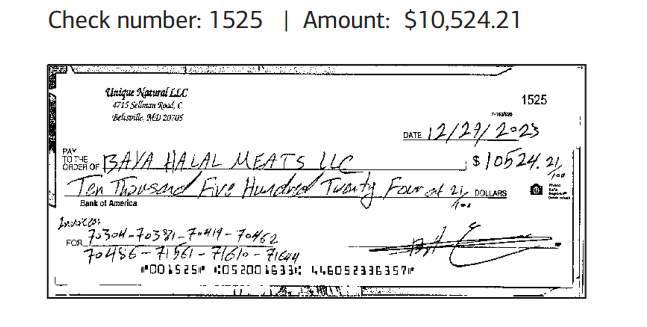 Check number: 1525 | Amount: $10,524.21
Unique Natural LLC
4715 Sellman Road, C
Beltsville, MD 20705
1525
DATE 12/29/2023
PAY TO THE ORDER OF BAYA HALAL MEATS LLC $10524.21/100
Ten Thousand Five Hundred Twenty Four at 21/100 DOLLARS
Bank of America
Invoices:
FOR 70304-70381-70419-70462
70486-71561-71610-71644
⑈001525⑈ ⑆052001633⑆ 446052336357⑈